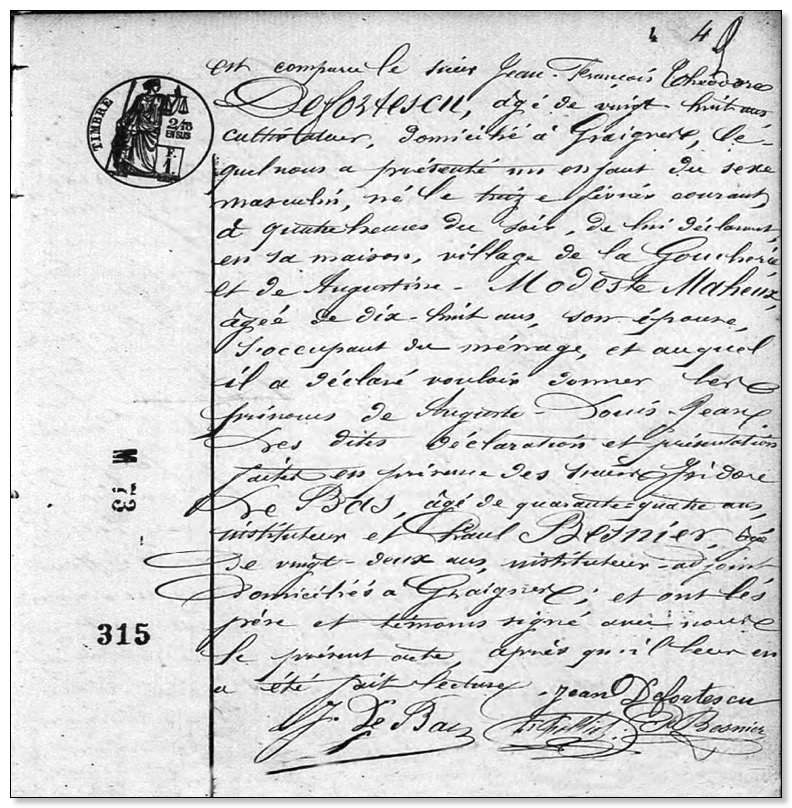 4 4
TIMBRE
2/10
EN SUS
F.
1
est comparu le sieur Jean-François Théodore
Defortescu, âgé de vingt huit ans
cultivateur, domicilié à Graignes, le-
quel nous a présenté un enfant du sexe
masculin, né le treize février courant
à quatre heures du soir, de lui déclarant,
en sa maison, village de la Goucherie
et de Augustine-Modeste Maheux,
âgée de dix-huit ans, son épouse,
s'occupant du ménage, et auquel
il a déclaré vouloir donner les
prénoms de Auguste-Louis-Jean.
Les dites déclaration et présentation
faites en présence des sieurs Isidore
Le Bas, âgé de quarante-quatre ans,
instituteur et Paul Besnier, âgé
de vingt-deux ans, instituteur-adjoint
domiciliés à Graignes; et ont les
père et témoins signé avec nous
le présent acte, après qu'il leur en
a été fait lecture. Jean Defortescu
J. Le Bas Besnier
M
315